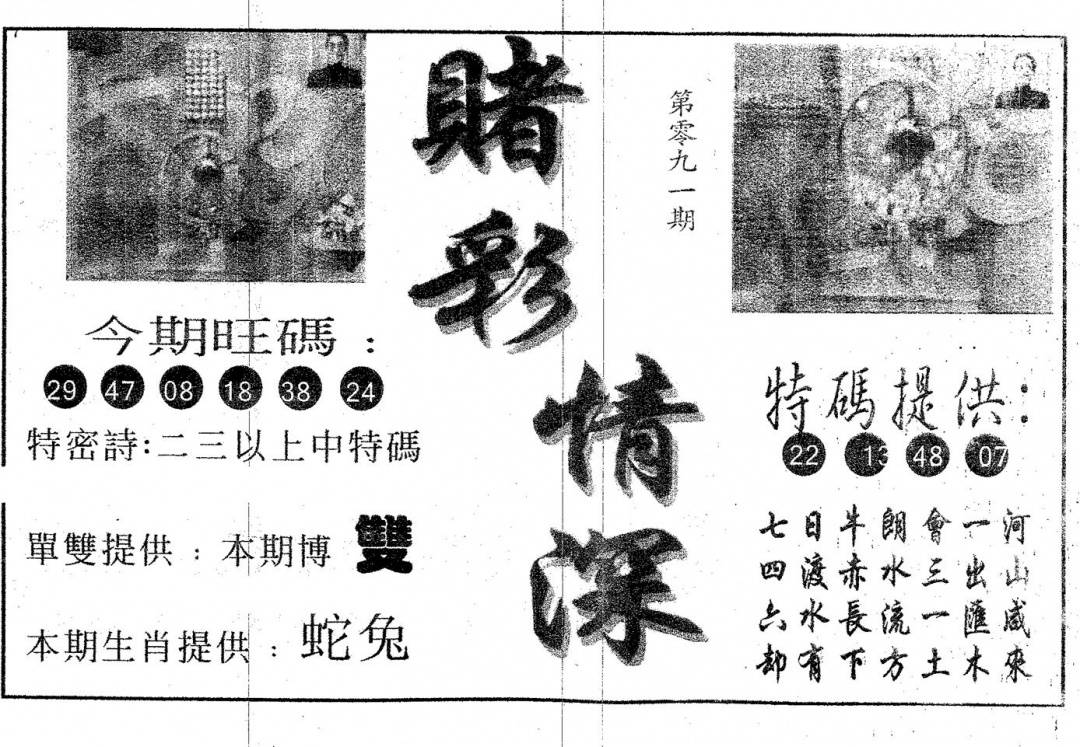 賭彩情深
第零九一期
今期旺碼：
29 47 08 18 38 24
特密詩:二三以上中特碼
單雙提供：本期博 雙
本期生肖提供：蛇兔
特碼提供：
22 13 48 07
河山咸來
一出匯木
會三一土
朗水流方
牛赤長下
日渡水有
七四六卻